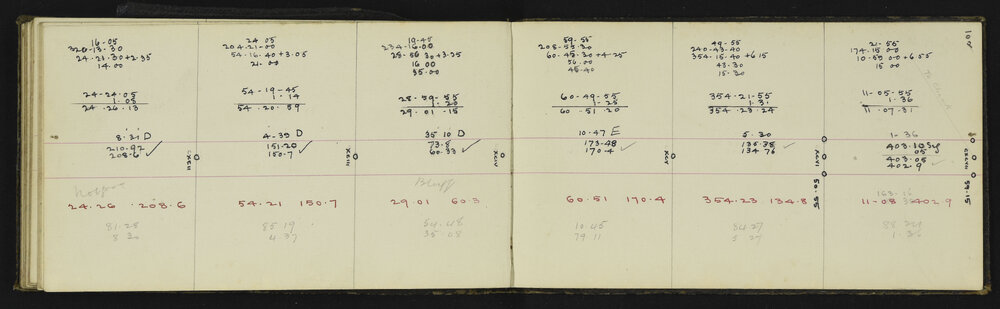 16.05
320.13.30
24.21.30+2.35
14.00
24.24.05
1.08
24.26.13
8.31 D
210.92
208.6
24.26 208.6
81.25
8 30
24.05
204.21.00
54.16.40+3.05
21.00
54.19.45
1.14
54.20.59
4.39 D
151.20
150.7
54.21 150.7
85 19
4 37
19.45
234.16.00
28.56 30+3.25
16 00
35.00
28.59.55
1.20
29.01.15
35 10 D
73.8
60.33
XCIV
Bluff
29.01 60.3
54.48
35.08
59.55
208.55.30
60.45.30+4.25
56.00
45.40
60.49.55
1.25
60.51.20
10.47 E
173.48
170.4
XCV
60.51 170.4
10 45
79 11
49.55
240.43.40
354.15.40+6.15
43.30
15.30
354.21.55
1.31
354.23.24
5.30
135.38
134 76
XCVI
50.55
354.23 134.8
84.27
5 27
100
21.55
174.15 00
10.59 00+6.55
15 00
11.05.55
1.36
11.07.31
1.36
403.10
05
403.05
402.9
59.15
11.08 402 9
1.36